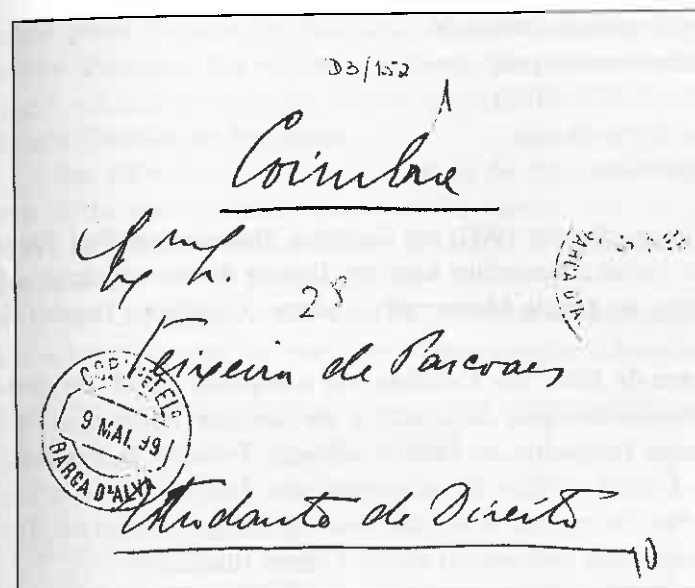 D3/152
Coimbra
2º
Teixeira de Pascoaes
CORR. E TEL.
9 MAI. 99
BARCA D'ALVA
Estudante de Direito
10